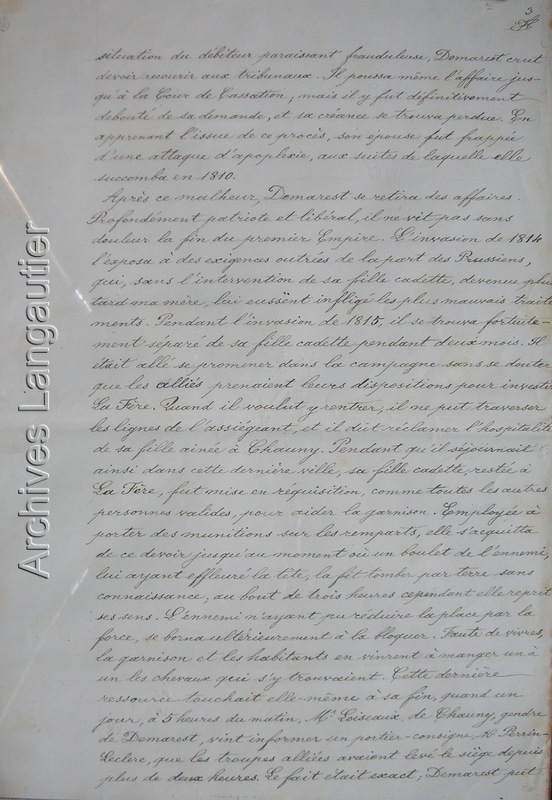 3
situation du débiteur paraissant frauduleuse, Demarest crut
devoir recourir aux tribunaux. Il poussa même l'affaire jus-
qu'à la Cour de Cassation, mais il y fut définitivement
debouté de sa demande, et sa créance se trouva perdue. En
apprenant l'issue de ce procès, son épouse fut frappée
d'une attaque d'apoplexie, aux suites de laquelle elle
succomba en 1810.
Après ce malheur, Demarest se retira des affaires.
Profondément patriote et libéral, il ne vit pas sans
douleur la fin du premier Empire. L'invasion de 1814
l'exposa à des exigences outrées de la part des Prussiens,
qui, sans l'intervention de sa fille cadette, devenue plus
tard ma mère, lui eussent infligé les plus mauvais traite
ments. Pendant l'invasion de 1815, il se trouva fortuite-
ment séparé de sa fille cadette pendant deux mois. Il
était allé se promener dans la campagne sans se douter
que les alliés prenaient leurs dispositions pour investir
La Fère. Quand il voulut y rentrer, il ne put traverser
les lignes de l'assiégeant, et il dût réclamer l'hospitalité
de sa fille ainée à Chauny. Pendant qu'il séjournait
ainsi dans cette dernière ville, sa fille cadette, restée à
La Fère, fut mise en requisition, comme toutes les autres
personnes valides, pour aider la garnison. Employée à
porter des munitions sur les remparts, elle s'acquitta
de ce devoir jusqu'au moment où un boulet de l'ennemi,
lui ayant effleuré la tête, la fit tomber par terre sans
connaissance; au bout de trois heures cependant elle reprit
ses sens. L'ennemi n'ayant pu réduire la place par la
force, se borna ultérieurement à la bloquer. Faute de vivres,
la garnison et les habitants en vinrent à manger un à
un les chevaux qui s'y trouvaient. Cette dernière
ressource touchait elle-même à sa fin, quand un
jour, à 5 heures du matin, Mr Loiseaux, de Chauny, gendre
de Demarest, vint informer un portier-consigne, Mr Perrin-
Leclerc, que les troupes alliées avaient levé le siège depuis
plus de deux heures. Le fait était exact; Demarest put
Archives Langautier